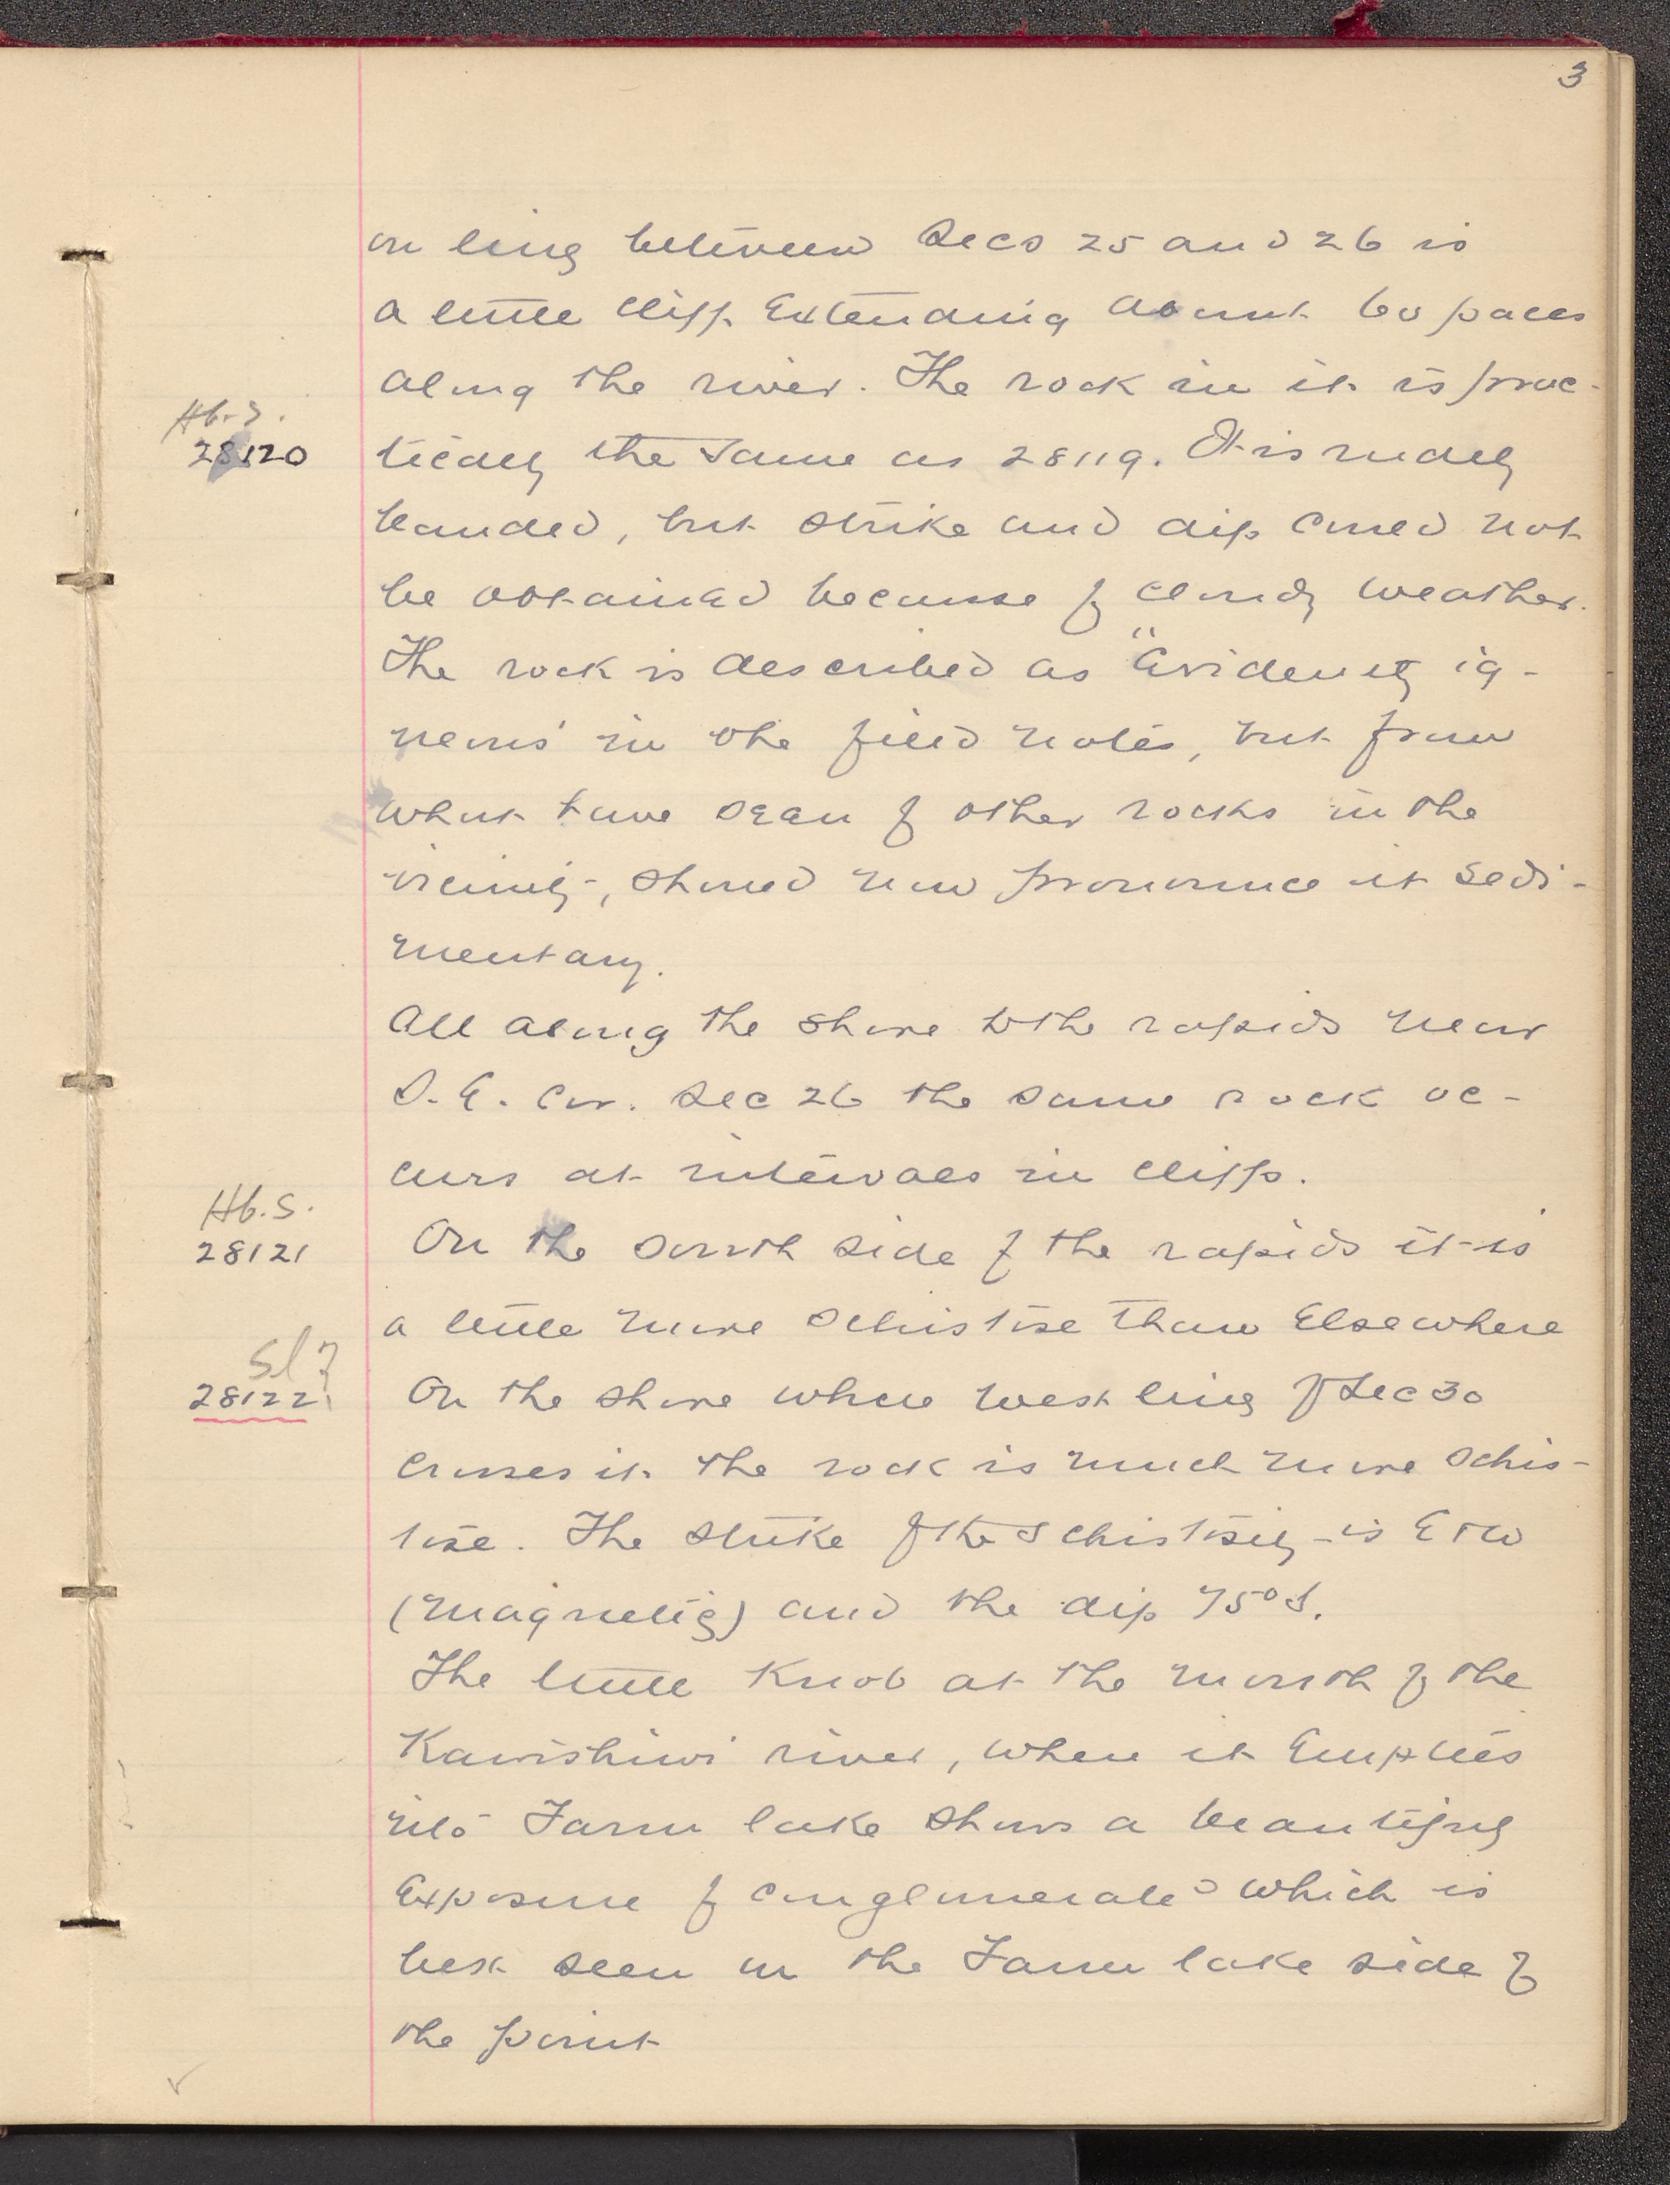 3
on line between Secs 25 and 26 is
a little cliff extending about 60 paces
along the river. The rock in it is prac-
Hb. S.
28120 tically the same as 28119. It is rudely
banded, but strike and dip could not
be obtained because of cloudy weather.
The rock is described as "Evidently ig-
neous" in the field notes, but from
what have seen of other rocks in the
vicinity, should now pronounce it sedi-
mentary.
All along the shore to the rapids near
S. E. Cor. Sec 26 the same rock oc-
curs at intervals in cliffs.
Hb. S.
28121 On the south side of the rapids it is
a little more schistose than elsewhere
Sl?
28122 On the shore where west line of Sec 30
crosses it the rock is much more schis-
tose. The strike of the schistosity is E + W
(magnetic) and the dip 75° S.
The little knob at the mouth of the
Kawishiwi river, where it empties
into Farm lake shows a beautiful
exposure of conglomerate which is
best seen on the Farm lake side of
the point